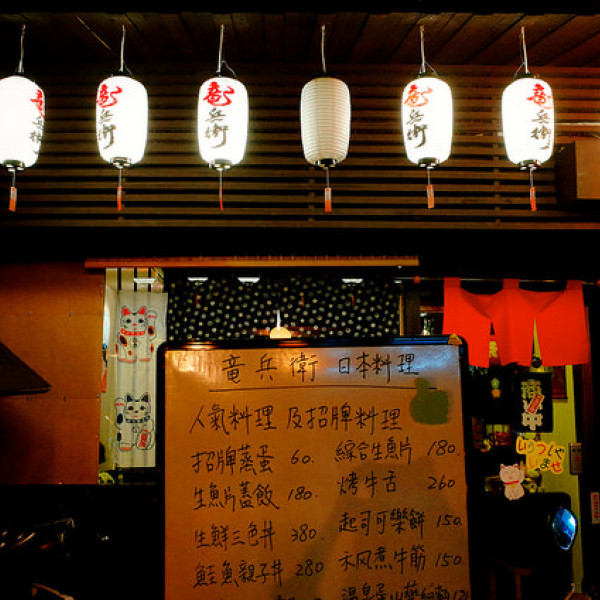 竜兵衛
竜兵衛
竜兵衛
竜兵衛
竜兵衛
竜兵衛 日本料理
人氣料理 及招牌料理
招牌蒸蛋 60.
生魚片蓋飯 180.
生鮮三色丼 380.
鮭魚親子丼 280
綜合生魚片 180.
烤牛舌 260
起司可樂餅 150.
禾风煮牛筋 150.
いらっしゃい
ませ